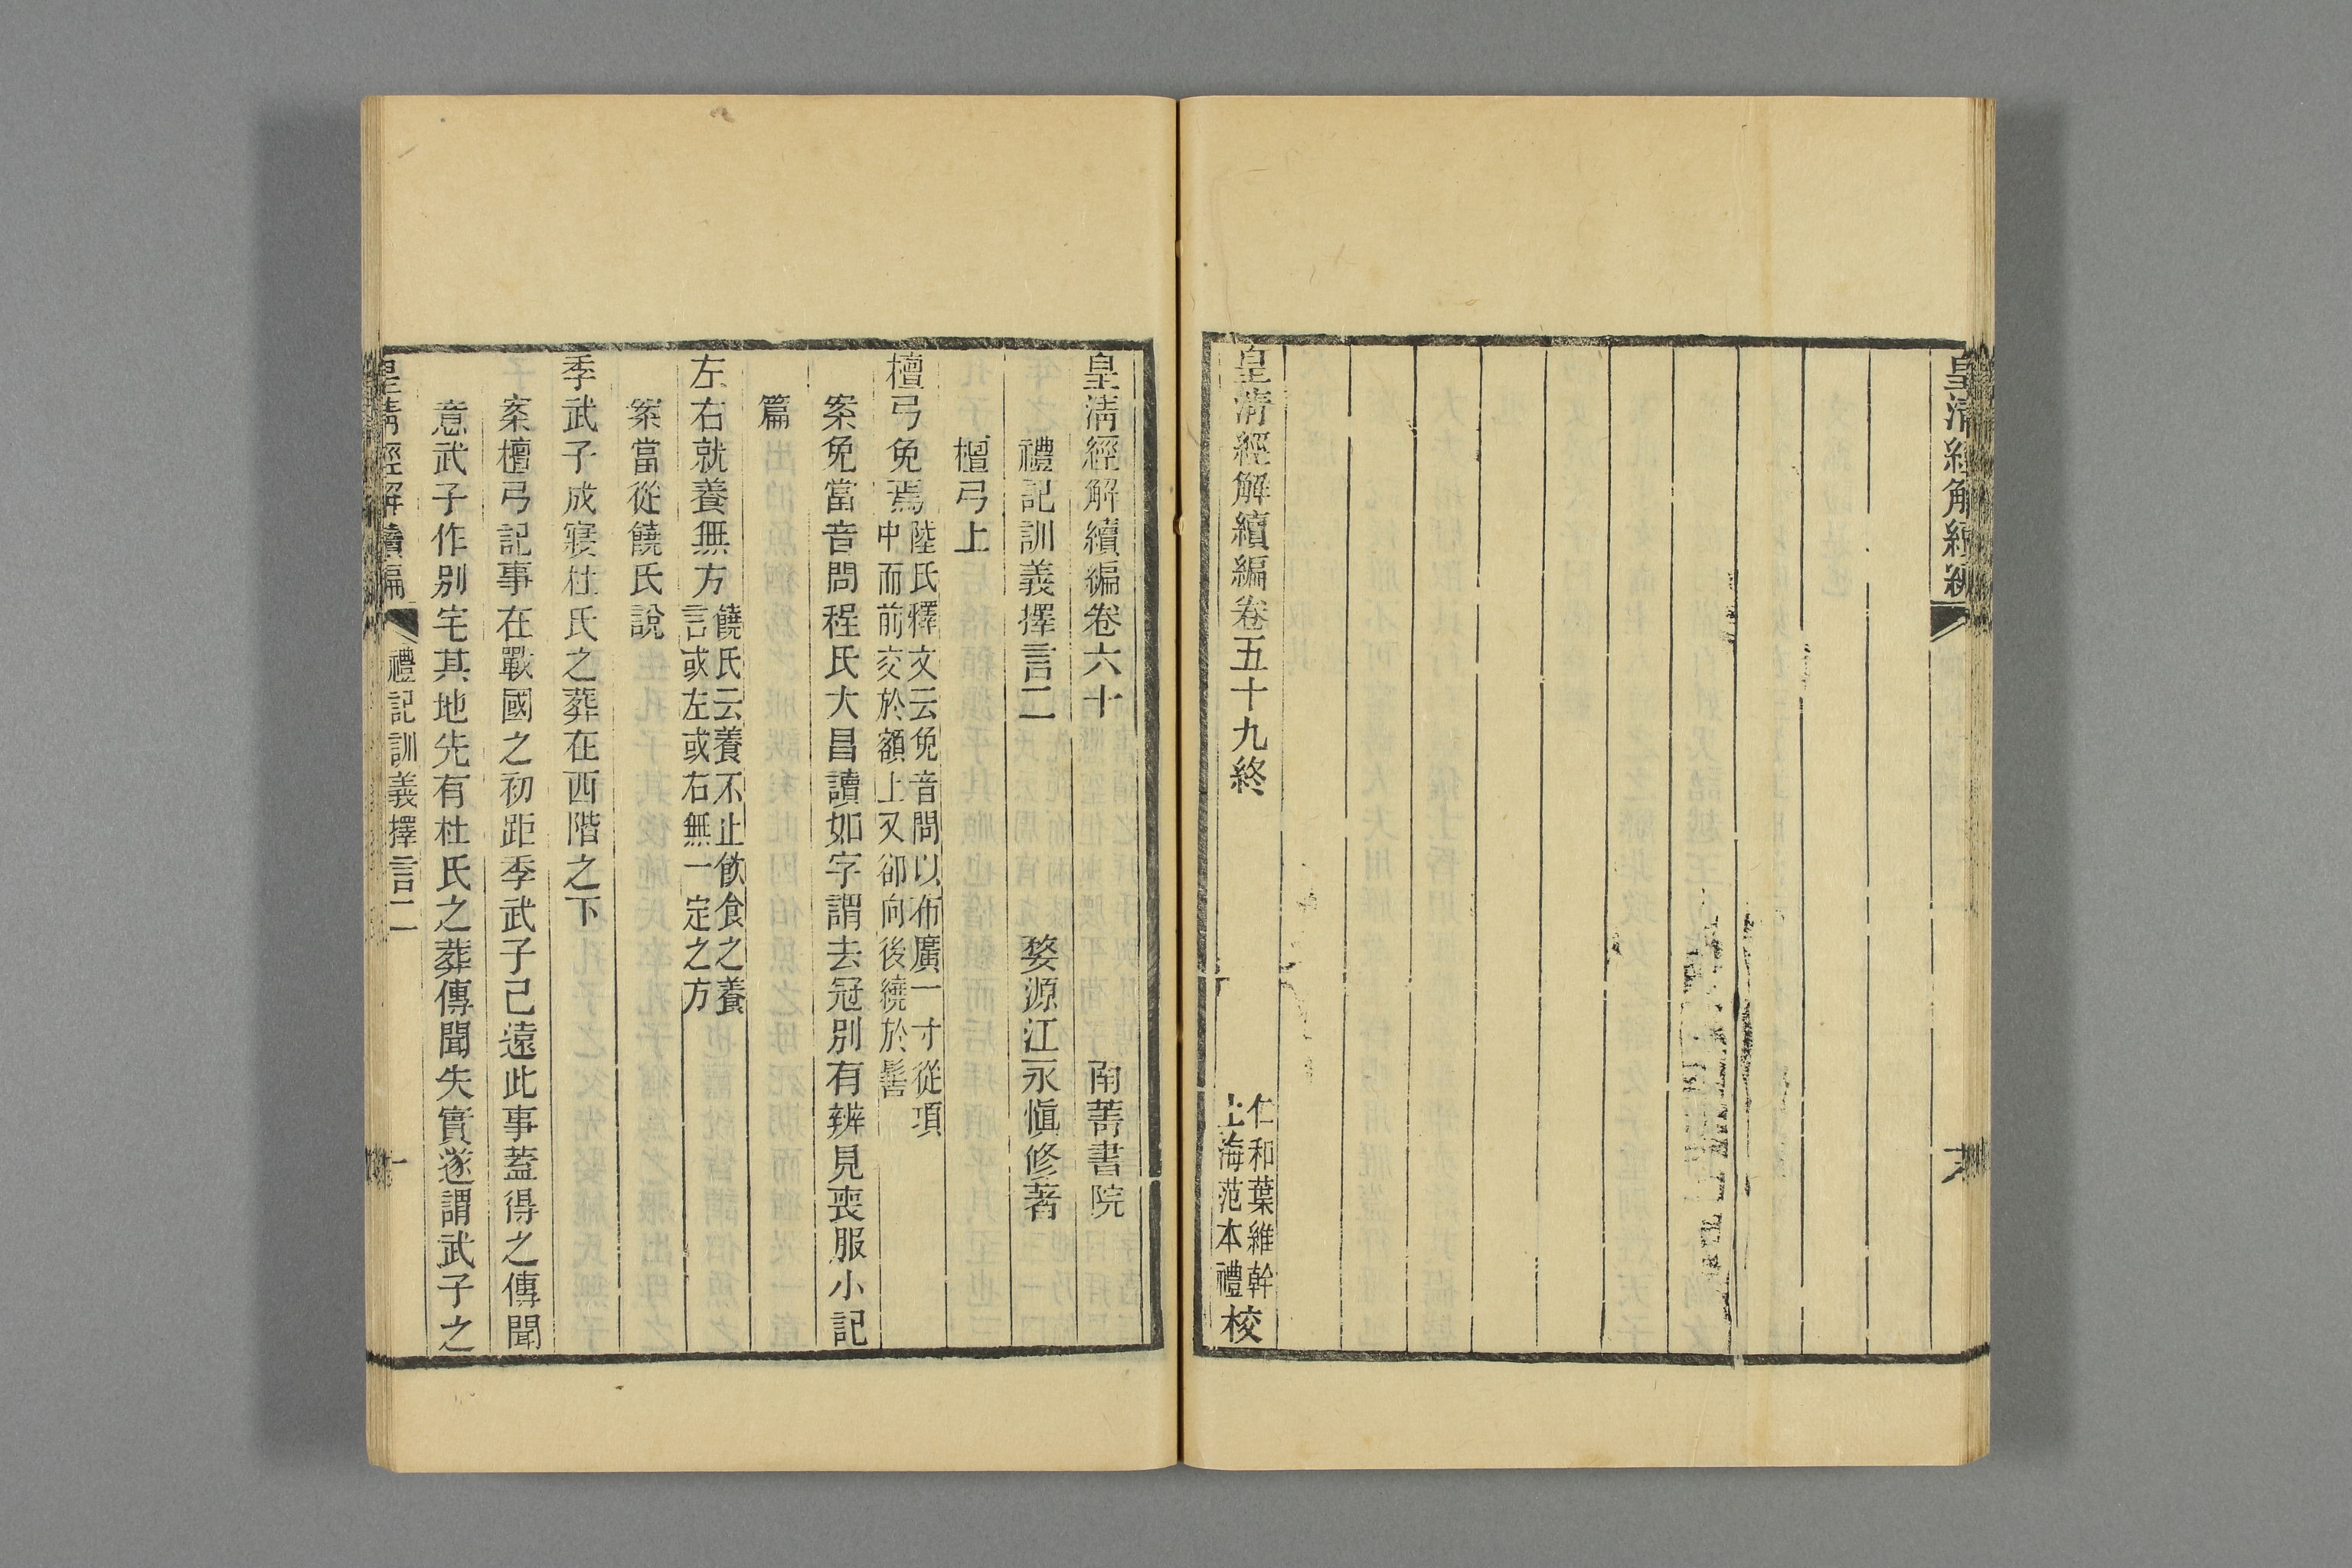 皇清經解續編
皇清經解續編卷五十九終
仁和葉維幹
上海范本禮
校
皇清經解續編卷六十 南菁書院
禮記訓義擇言二 婺源江永愼修著
檀弓上
檀弓免焉陸氏釋文云免音問以布廣一寸從項
中而前交於額上又卻向後繞於髻
案免當音問程氏大昌讀如字謂去冠別有辨見喪服小記
篇
左右就養無方饒氏云養不止飲食之養
言或左或右無一定之方
案當從饒氏說
季武子成寢杜氏之葬在西階之下
案檀弓記事在戰國之初距季武子已遠此事蓋得之傳聞
意武子作別宅其地先有杜氏之葬傳聞失實遂謂武子之
皇清經解續編 禮記訓義擇言二 一